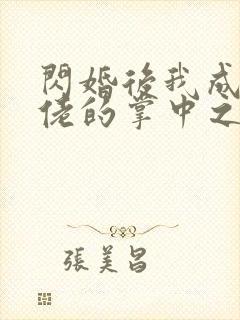 閃婚後我成
佬的掌中之
張美昌